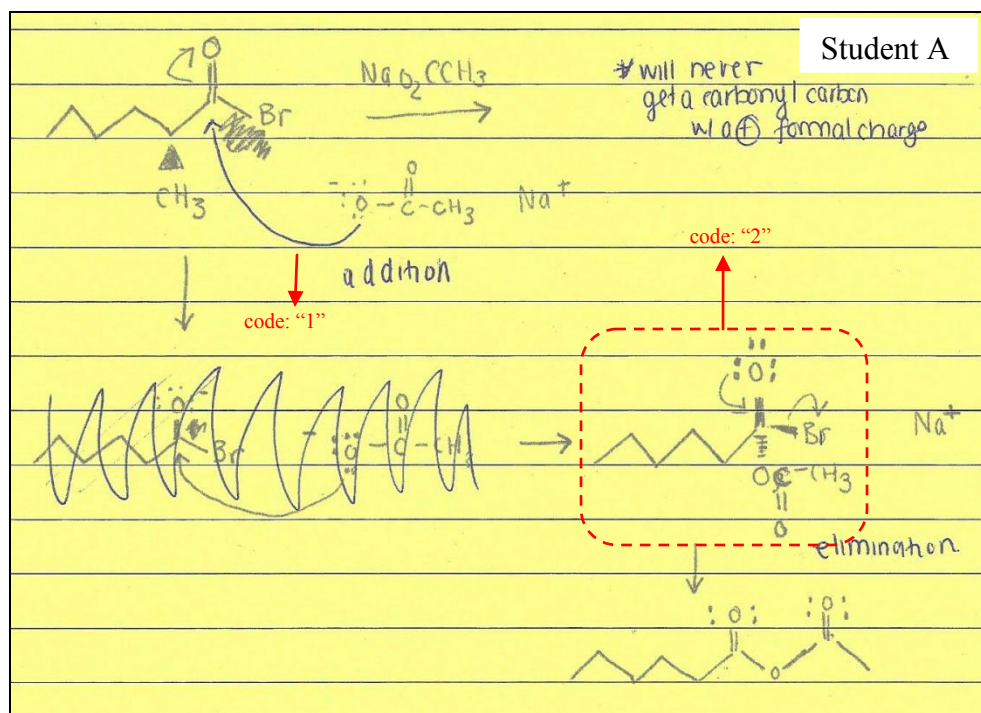 Student A
O
Br
NaO2CCH3
* will never
get a carbonyl carbon
w/ a ⊕ formal charge
CH3
O
- :Ö-C-CH3 Na+
code: "2"
addition
code: "1"
:O: -
Br
O
- :Ö-C-CH3
:Ö:
Br
Na+
OC-CH3
O
elimination
:O: :O:
O